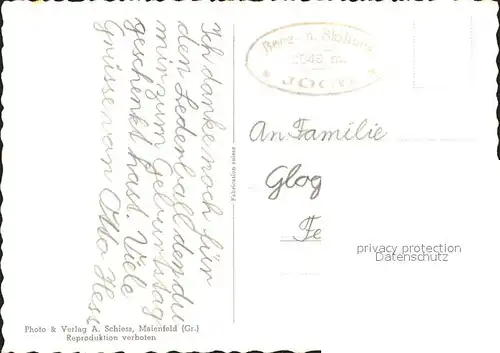 Ich danke noch für
den Lederball den du
mir zum Geburtstag
geschenkt hast. Viele
Grüsse von Otto Hess
Fabrication suisse
Berg- u. Skihaus
m.
An Familie
Glog
Fe
privacy protection
Datenschutz
Photo & Verlag A. Schiess, Maienfeld (Gr.)
Reproduktion verboten